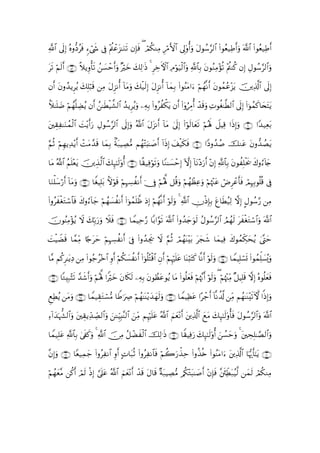 أَطِيعُوا۟ ٱللَّهَ وَأَطِيعُوا۟ ٱلرَّسُولَ وَأُو۟لِى ٱلْأَمْرِ مِنكُمْ ۖ فَإِن تَنَـٰزَعْتُمْ فِى شَىْءٍ فَرُدُّوهُ إِلَى ٱللَّهِ
وَٱلرَّسُولِ إِن كُنتُمْ تُؤْمِنُونَ بِٱللَّهِ وَٱلْيَوْمِ ٱلْـَٔاخِرِ ۚ ذَٰلِكَ خَيْرٌ وَأَحْسَنُ تَأْوِيلًا ۝ أَلَمْ تَرَ
إِلَى ٱلَّذِينَ يَزْعُمُونَ أَنَّهُمْ ءَامَنُوا۟ بِمَآ أُنزِلَ إِلَيْكَ وَمَآ أُنزِلَ مِن قَبْلِكَ يُرِيدُونَ أَن
يَتَحَاكَمُوٓا۟ إِلَى ٱلطَّـٰغُوتِ وَقَدْ أُمِرُوٓا۟ أَن يَكْفُرُوا۟ بِهِۦ وَيُرِيدُ ٱلشَّيْطَـٰنُ أَن يُضِلَّهُمْ ضَلَـٰلًۢا
بَعِيدًا ۝ وَإِذَا قِيلَ لَهُمْ تَعَالَوْا۟ إِلَىٰ مَآ أَنزَلَ ٱللَّهُ وَإِلَى ٱلرَّسُولِ رَأَيْتَ ٱلْمُنَـٰفِقِينَ
يَصُدُّونَ عَنكَ صُدُودًا ۝ فَكَيْفَ إِذَآ أَصَـٰبَتْهُم مُّصِيبَةٌۢ بِمَا قَدَّمَتْ أَيْدِيهِمْ ثُمَّ
جَآءُوكَ يَحْلِفُونَ بِٱللَّهِ إِنْ أَرَدْنَآ إِلَّآ إِحْسَـٰنًا وَتَوْفِيقًا ۝ أُو۟لَـٰٓئِكَ ٱلَّذِينَ يَعْلَمُ ٱللَّهُ مَا
فِى قُلُوبِهِمْ فَأَعْرِضْ عَنْهُمْ وَعِظْهُمْ وَقُل لَّهُمْ فِىٓ أَنفُسِهِمْ قَوْلًۢا بَلِيغًا ۝ وَمَآ أَرْسَلْنَا
مِن رَّسُولٍ إِلَّا لِيُطَاعَ بِإِذْنِ ٱللَّهِ ۚ وَلَوْ أَنَّهُمْ إِذ ظَّلَمُوٓا۟ أَنفُسَهُمْ جَآءُوكَ فَٱسْتَغْفَرُوا۟
ٱللَّهَ وَٱسْتَغْفَرَ لَهُمُ ٱلرَّسُولُ لَوَجَدُوا۟ ٱللَّهَ تَوَّابًا رَّحِيمًا ۝ فَلَا وَرَبِّكَ لَا يُؤْمِنُونَ
حَتَّىٰ يُحَكِّمُوكَ فِيمَا شَجَرَ بَيْنَهُمْ ثُمَّ لَا يَجِدُوا۟ فِىٓ أَنفُسِهِمْ حَرَجًا مِّمَّا قَضَيْتَ
وَيُسَلِّمُوا۟ تَسْلِيمًا ۝ وَلَوْ أَنَّا كَتَبْنَا عَلَيْهِمْ أَنِ ٱقْتُلُوٓا۟ أَنفُسَكُمْ أَوِ ٱخْرُجُوا۟ مِن دِيَـٰرِكُم مَّا
فَعَلُوهُ إِلَّا قَلِيلٌ مِّنْهُمْ ۖ وَلَوْ أَنَّهُمْ فَعَلُوا۟ مَا يُوعَظُونَ بِهِۦ لَكَانَ خَيْرًا لَّهُمْ وَأَشَدَّ تَثْبِيتًا ۝
وَإِذًا لَّـَٔاتَيْنَـٰهُم مِّن لَّدُنَّآ أَجْرًا عَظِيمًا ۝ وَلَهَدَيْنَـٰهُمْ صِرَٰطًا مُّسْتَقِيمًا ۝ وَمَن يُطِعِ
ٱللَّهَ وَٱلرَّسُولَ فَأُو۟لَـٰٓئِكَ مَعَ ٱلَّذِينَ أَنْعَمَ ٱللَّهُ عَلَيْهِم مِّنَ ٱلنَّبِيِّـۧنَ وَٱلصِّدِّيقِينَ وَٱلشُّهَدَآءِ
وَٱلصَّـٰلِحِينَ ۚ وَحَسُنَ أُو۟لَـٰٓئِكَ رَفِيقًا ۝ ذَٰلِكَ ٱلْفَضْلُ مِنَ ٱللَّهِ ۚ وَكَفَىٰ بِٱللَّهِ عَلِيمًا
۝ يَـٰٓأَيُّهَا ٱلَّذِينَ ءَامَنُوا۟ خُذُوا۟ حِذْرَكُمْ فَٱنفِرُوا۟ ثُبَاتٍ أَوِ ٱنفِرُوا۟ جَمِيعًا ۝ وَإِنَّ
مِنكُمْ لَمَن لَّيُبَطِّئَنَّ فَإِنْ أَصَـٰبَتْكُم مُّصِيبَةٌ قَالَ قَدْ أَنْعَمَ ٱللَّهُ عَلَىَّ إِذْ لَمْ أَكُن مَّعَهُمْ